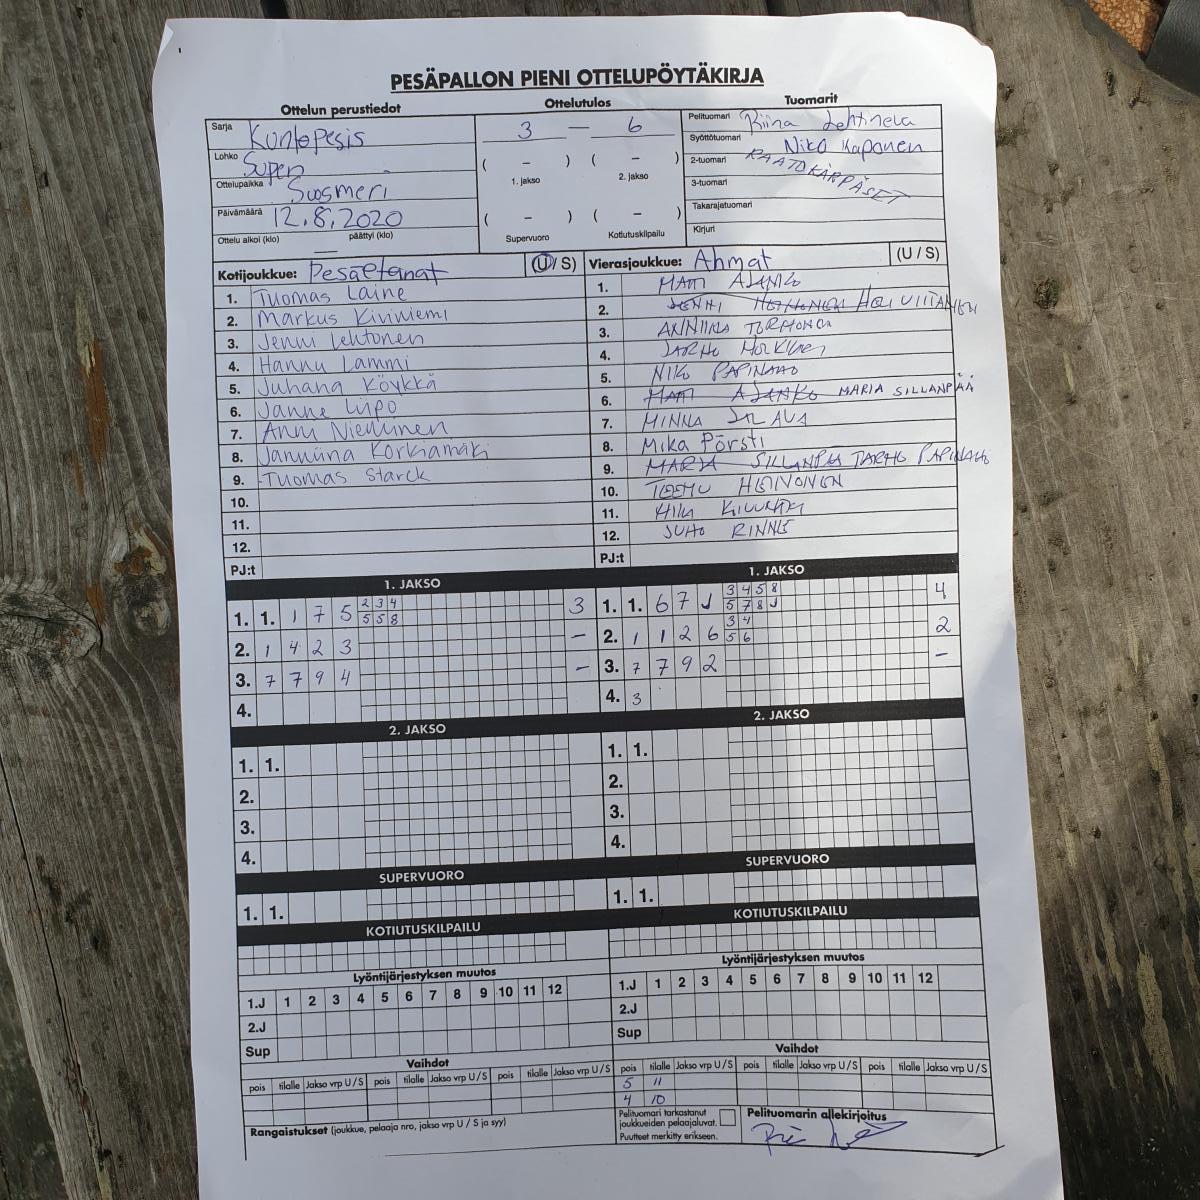 PESÄPALLON PIENI OTTELUPÖYTÄKIRJA
Ottelun perustiedot
Ottelutulos
Tuomarit
Sarja Kuntopesis
Lohko Super
Ottelupaikka Suosmeri
Päivämäärä 12.8.2020
Ottelu alkoi (klo) — päättyi (klo)
3 — 6
( – ) ( – )
1. jakso 2. jakso
( – ) ( – )
Supervuoro Kotiutuskilpailu
Pelituomari Riina Lehtinen
Syöttötuomari Niko Kaponen
2-tuomari RAATOKÄRPÄSET
3-tuomari
Takarajatuomari
Kirjuri
Kotijoukkue: Pesäeltanat (U / S)
1. Tuomas Laine
2. Markus Kiviniemi
3. Jenni Lehtonen
4. Hannu Lammi
5. Juhana Köykkä
6. Janne Liipo
7. Anni Nieminen
8. Janniina Korkiamäki
9. Tuomas Starck
10.
11.
12.
PJ:t
Vierasjoukkue: Ahmat (U / S)
1. MATTI AJANKO
2. JENNI HEINONEN HEIVIITANEN
3. ANNIINA TORHONEN
4. JARHO
5. NIKO PAPINAHO
6. MATTI AJANKO MARIA SILLANPÄÄ
7. MINNA SALAVA
8. Mika Pörsti
9. MARIA SILLANPÄÄ JARHO PAPINAHO
10. TEEMU HEINONEN
11.
12. JUHO RINNE
PJ:t
1. JAKSO
1. 1. 1 7 5 2 3 4 3
5 5 8
2. 1 4 2 3 –
3. 7 7 9 4 –
4.
2. JAKSO
1. 1.
2.
3.
4.
SUPERVUORO
1. 1.
KOTIUTUSKILPAILU
Lyöntijärjestyksen muutos
1.J 1 2 3 4 5 6 7 8 9 10 11 12
2.J
Sup
Vaihdot
pois tilalle Jakso vrp U / S pois tilalle Jakso vrp U / S pois tilalle Jakso vrp U / S
Rangaistukset (joukkue, pelaaja nro, jakso vrp U / S ja syy)
1. JAKSO
1. 1. 6 7 J 3 4 5 8 4
5 7 8 J
2. 1 1 2 6 3 4 2
5 6
3. 7 7 9 2 –
4. 3
2. JAKSO
1. 1.
2.
3.
4.
SUPERVUORO
1. 1.
KOTIUTUSKILPAILU
Lyöntijärjestyksen muutos
1.J 1 2 3 4 5 6 7 8 9 10 11 12
2.J
Sup
Vaihdot
pois tilalle Jakso vrp U / S pois tilalle Jakso vrp U / S pois tilalle Jakso vrp U / S
5 11
4 10
Pelituomari tarkastanut
joukkueiden pelaajaluvat.
Puutteet merkitty erikseen.
Pelituomarin allekirjoitus